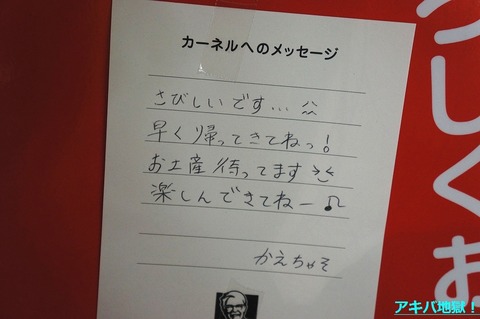 カーネルへのメッセージ
さびしいです…
早く帰ってきてねっ!
お土産待ってます
楽しんできてねー♪
かえちゃそ
うしくお
アキバ地獄!